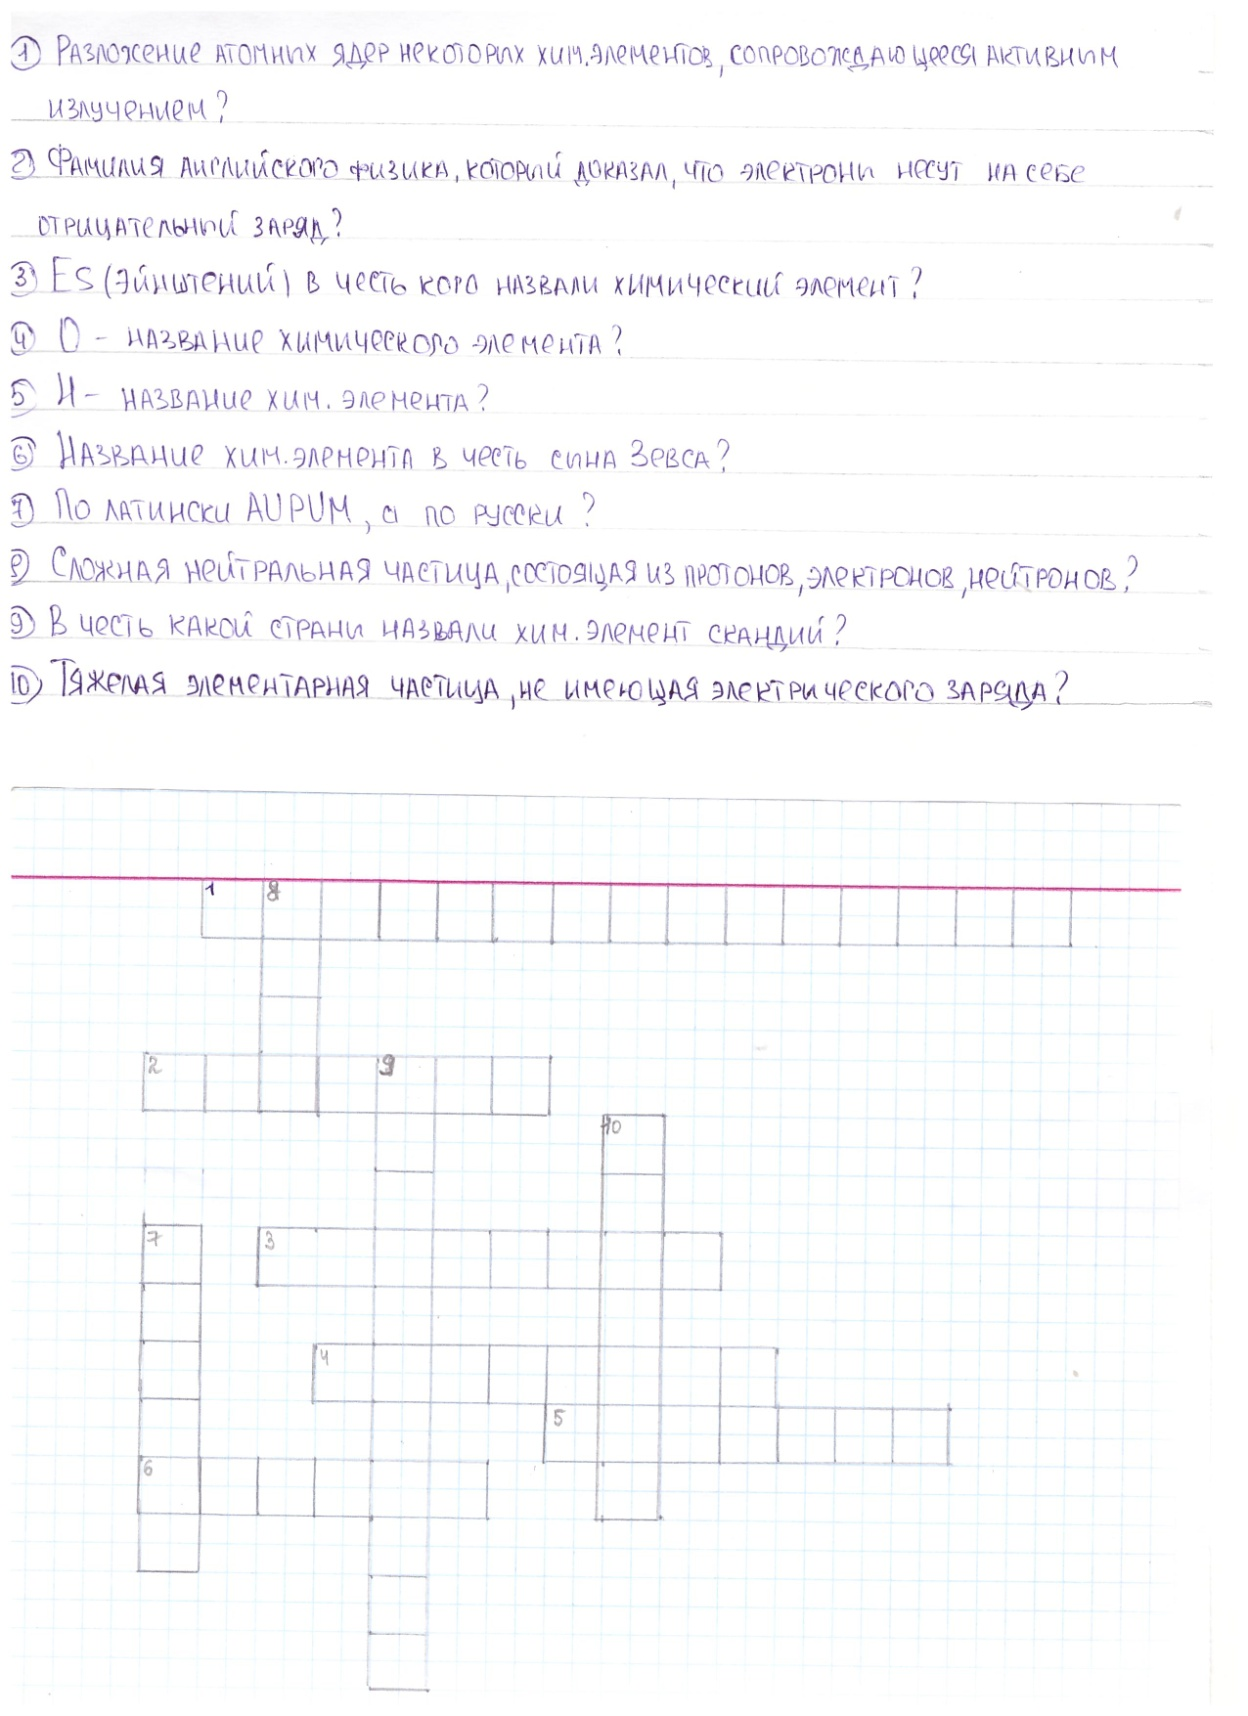 1) Разложение атомних ядер некоторих хим.элементов, сопровождающееся активним
излучением?
2) Фамилия английского физика, который доказал, что электрони несут на себе
отрицательный заряд?
3) Es (Эйнштений) в честь кого назвали химический элемент?
4) O - название химического элемента?
5) H - название хим. элемента?
6) Название хим.элемента в честь сина Зевса?
7) По латински AURUM, а по русски?
8) Сложная нейтральная частица, состоящая из протонов, электронов, нейтронов?
9) В честь какой страни назвали хим. элемент скандий?
10) Тяжелая элементарная частица, не имеющая электрического заряда?
1 8
2 9
10
7 3
4
5
6